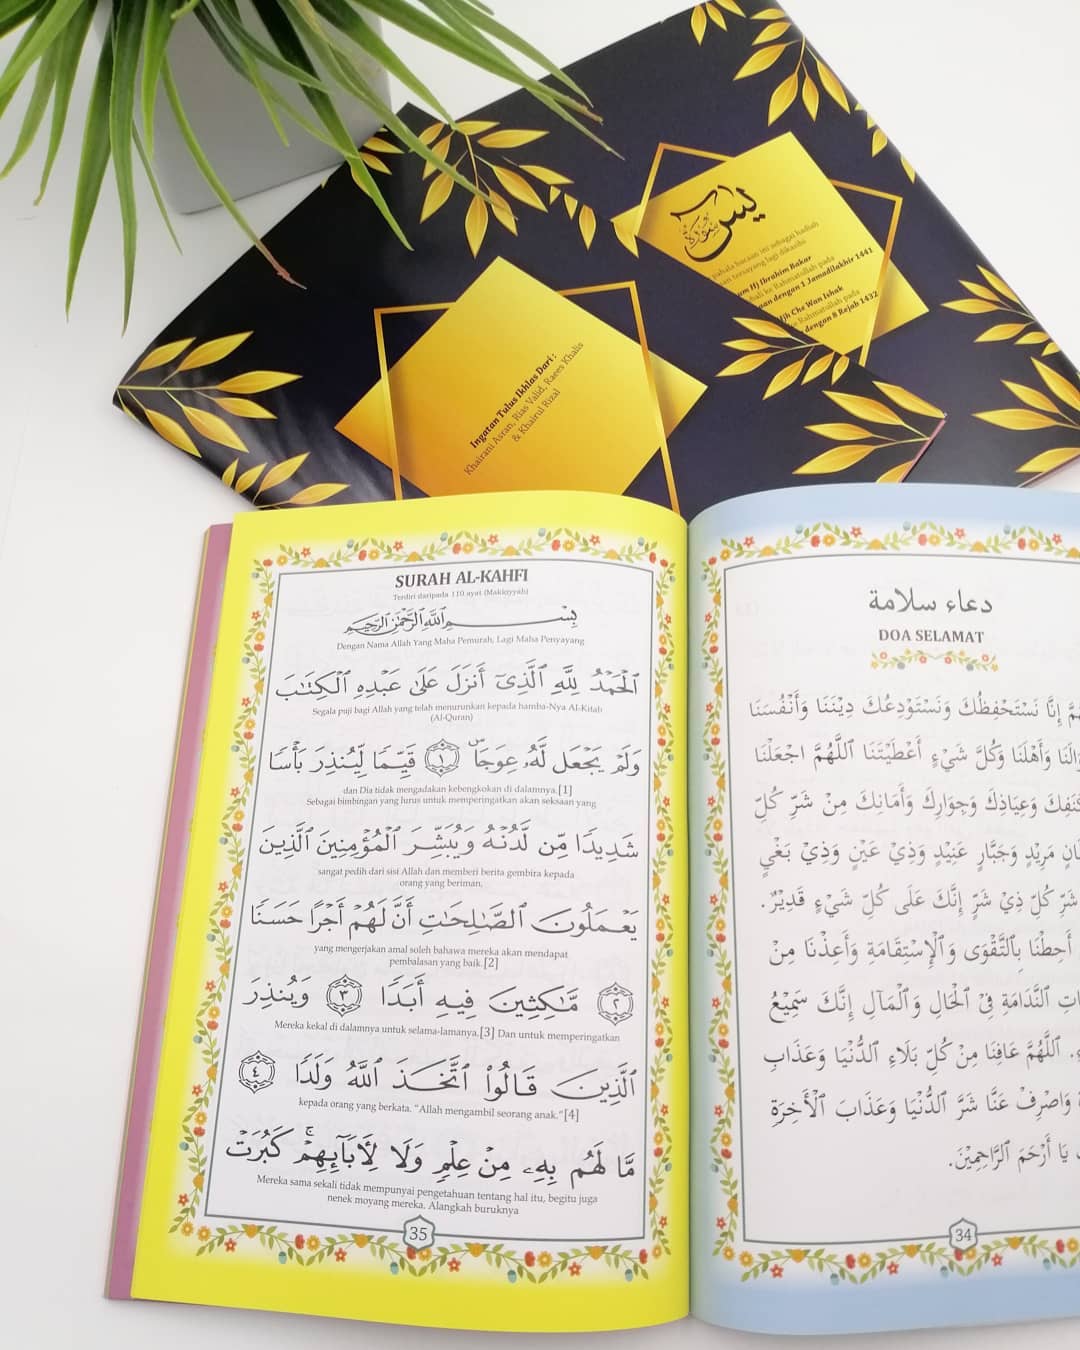 يس
سورة
pahala bacaan ini sebagai hadiah
tersayang lagi dikasihi
Hj Ibrahim Bakar
ke Rahmatullah pada
dengan 1 Jamadilakhir 1441
Hjh Che Wan Ishak
ke Rahmatullah pada
dengan 8 Rejab 1432
Ingatan Tulus Ikhlas Dari :
Khairani Asran, Rias Valid, Raees Khalis
& Khairul Rizal
SURAH AL-KAHFI
Terdiri daripada 110 ayat (Makkiyyah)
بِسْمِ اللَّهِ الرَّحْمَٰنِ الرَّحِيمِ
Dengan Nama Allah Yang Maha Pemurah, Lagi Maha Penyayang
ٱلْحَمْدُ لِلَّهِ ٱلَّذِىٓ أَنزَلَ عَلَىٰ عَبْدِهِ ٱلْكِتَـٰبَ
Segala puji bagi Allah yang telah menurunkan kepada hamba-Nya Al-Kitab
(Al-Quran)
وَلَمْ يَجْعَل لَّهُۥ عِوَجَاۜ ١ قَيِّمًا لِّيُنذِرَ بَأْسًا
dan Dia tidak mengadakan kebengkokan di dalamnya.[1]
Sebagai bimbingan yang lurus untuk memperingatkan akan seksaan yang
شَدِيدًا مِّن لَّدُنْهُ وَيُبَشِّرَ ٱلْمُؤْمِنِينَ ٱلَّذِينَ
sangat pedih dari sisi Allah dan memberi berita gembira kepada
orang yang beriman,
يَعْمَلُونَ ٱلصَّـٰلِحَـٰتِ أَنَّ لَهُمْ أَجْرًا حَسَنًا
yang mengerjakan amal soleh bahawa mereka akan mendapat
pembalasan yang baik.[2]
٢ مَّـٰكِثِينَ فِيهِ أَبَدًا ٣ وَيُنذِرَ
Mereka kekal di dalamnya untuk selama-lamanya.[3] Dan untuk memperingatkan
ٱلَّذِينَ قَالُوا۟ ٱتَّخَذَ ٱللَّهُ وَلَدًا ٤
kepada orang yang berkata. "Allah mengambil seorang anak."[4]
مَّا لَهُم بِهِۦ مِنْ عِلْمٍ وَلَا لِـَٔابَآئِهِمْ ۚ كَبُرَتْ
Mereka sama sekali tidak mempunyai pengetahuan tentang hal itu, begitu juga
nenek moyang mereka. Alangkah buruknya
35
دعاء سلامة
DOA SELAMAT
إِنَّا نَسْتَحْفِظُكَ وَنَسْتَوْدِعُكَ دِيْنَنَا وَأَنْفُسَنَا
وَأَهْلَنَا وَكُلَّ شَيْءٍ أَعْطَيْتَنَا اَللَّهُمَّ اجْعَلْنَا
كَنَفِكَ وَعِيَاذِكَ وَجِوَارِكَ وَأَمَانِكَ مِنْ شَرِّ كُلِّ
مَرِيْدٍ وَجَبَّارٍ عَنِيْدٍ وَذِيْ عَيْنٍ وَذِيْ بَغْيٍ
شَرِّ كُلِّ ذِيْ شَرٍّ إِنَّكَ عَلَى كُلِّ شَيْءٍ قَدِيْرٌ.
أَحِطْنَا بِالتَّقْوَى وَالْإِسْتِقَامَةِ وَأَعِذْنَا مِنْ
النَّدَامَةِ فِيْ الْحَالِ وَالْمَآلِ إِنَّكَ سَمِيْعُ
اَللَّهُمَّ عَافِنَا مِنْ كُلِّ بَلَاءِ الدُّنْيَا وَعَذَابِ
وَاصْرِفْ عَنَّا شَرَّ الدُّنْيَا وَعَذَابَ الْأَخِرَةِ
يَا أَرْحَمَ الرَّاحِمِيْنَ.
34